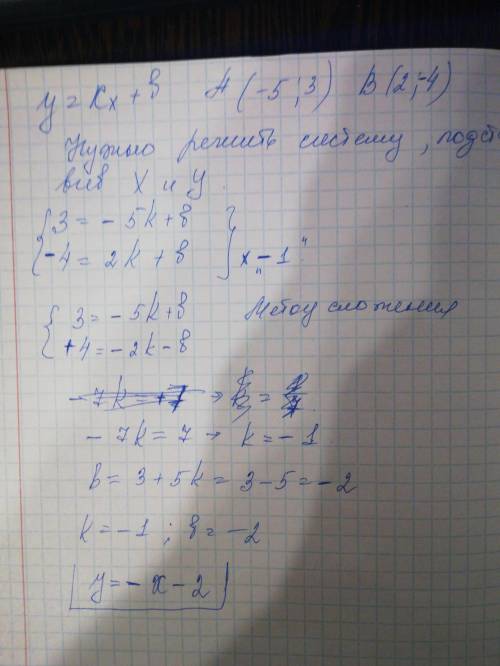 y = kx + в A (-5; 3) B (2; -4)
Нужно решить систему, подст
вив x и y.
{ 3 = -5k + в }
{ -4 = 2k + в } x „-1"
{ 3 = -5k + в Метод сложения
{ +4 = -2k - в
-7k = 7 → k = -1
в = 3 + 5k = 3 - 5 = -2
k = -1 ; в = -2
y = -x - 2